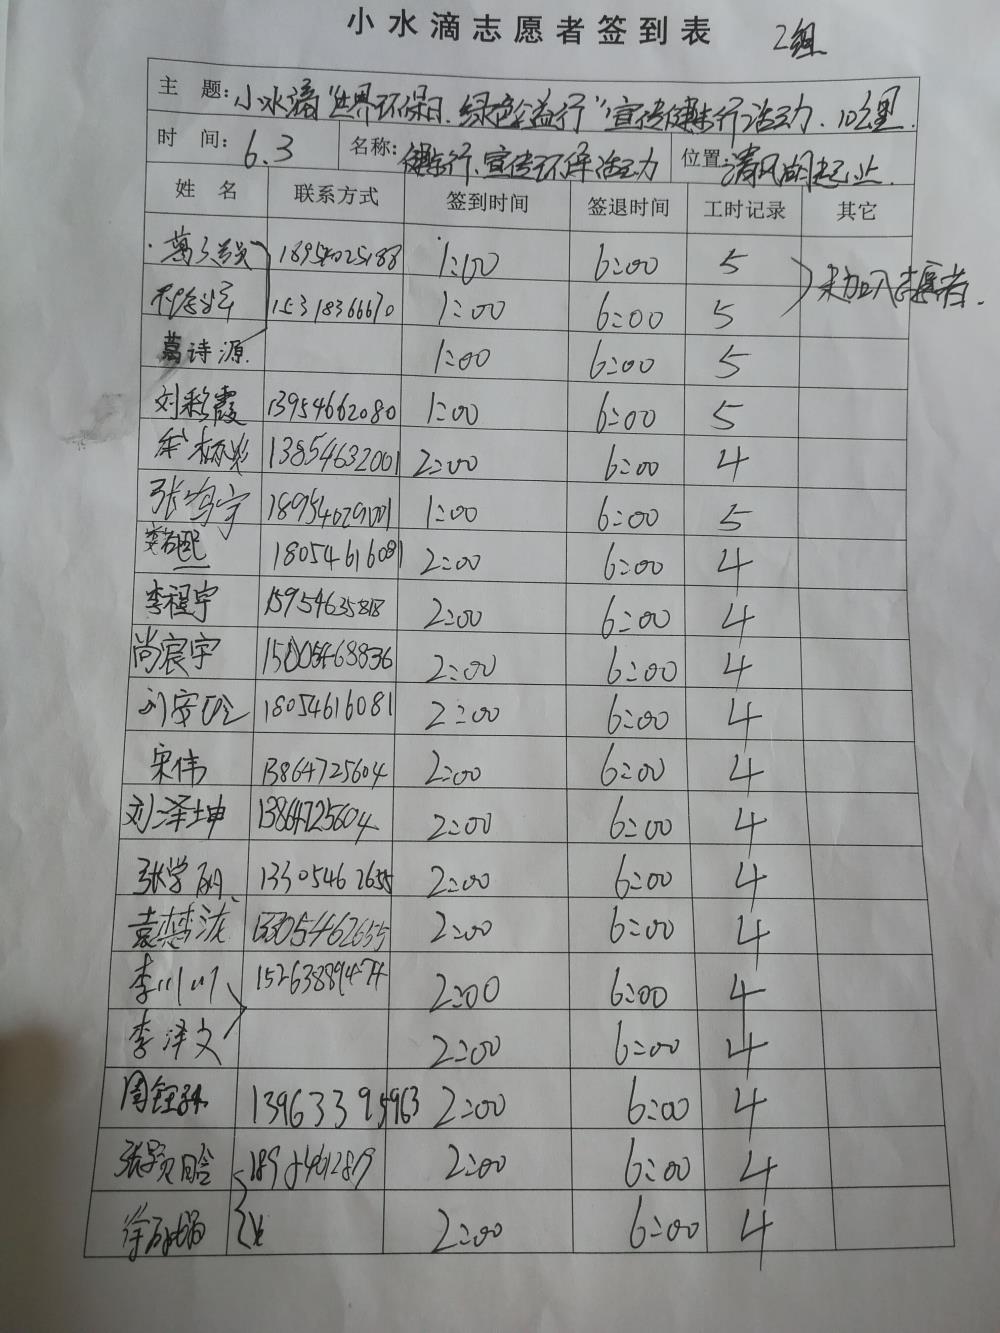 小水滴志愿者签到表 2组
主 题: 小水滴"世界环保日、绿色公益行"宣传健步行活动、10公里.
时 间: 6.3 名称: 健步行、宣传环保活动 位置: 清风湖
姓 名 联系方式 签到时间 签退时间 工时记录 其它
18954025188 1:00 6:00 5 未加入志愿者.
15318366670 1:00 6:00 5
葛诗源 1:00 6:00 5
刘彩霞 13954662080 1:00 6:00 5
13854632001 2:00 6:00 4
张 宇 1:00 6:00 5
18054616081 2:00 6:00 4
李程宇 15954635818 2:00 6:00 4
尚宸宇 15005468836 2:00 6:00 4
刘安 18054616081 2:00 6:00 4
宋伟 13864725604 2:00 6:00 4
刘泽坤 13864725604 2:00 6:00 4
张学 13305462655 2:00 6:00 4
袁梦泷 13305462655 2:00 6:00 4
李川川 15263889474 2:00 6:00 4
李泽文 2:00 6:00 4
周钰 13963395963 2:00 6:00 4
张颢晗 2:00 6:00 4
徐 2:00 6:00 4